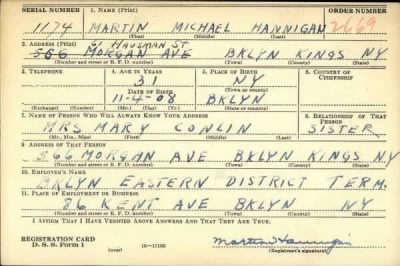 SERIAL NUMBER 1. NAME (Print) ORDER NUMBER
1174 MARTIN MICHAEL HANNIGAN 2669
(First) (Middle) (Last)
2. ADDRESS (Print) 61 HAUSMAN ST
566 MORGAN AVE BKLYN KINGS NY
(Number and street or R. F. D. number) (Town) (County) (State)
3. TELEPHONE 4. AGE IN YEARS 5. PLACE OF BIRTH 6. COUNTRY OF CITIZENSHIP
31 NY
DATE OF BIRTH (Town or county)
11-4-08 BKLYN
(Exchange) (Number) (Mo.) (Day) (Yr.) (State or country)
7. NAME OF PERSON WHO WILL ALWAYS KNOW YOUR ADDRESS 8. RELATIONSHIP OF THAT PERSON
MRS MARY CONLIN SISTER
(Mr., Mrs., Miss) (First) (Middle) (Last)
9. ADDRESS OF THAT PERSON
566 MORGAN AVE BKLYN KINGS NY
(Number and street or R. F. D. number) (Town) (County) (State)
10. EMPLOYER'S NAME
BKLYN EASTERN DISTRICT TERM.
11. PLACE OF EMPLOYMENT OR BUSINESS
86 KENT AVE BKLYN NY
(Number and street or R. F. D. number) (Town) (County) (State)
I AFFIRM THAT I HAVE VERIFIED ABOVE ANSWERS AND THAT THEY ARE TRUE.
REGISTRATION CARD
D. S. S. Form 1 (over) 16—17105 Martin Hannigan
(Registrant's signature)